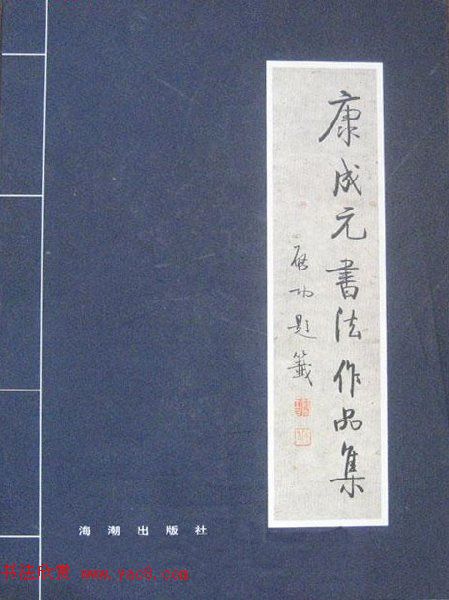 康成元書法作品集
启功題籤
海潮出版社
书法欣赏 www.yac8.com